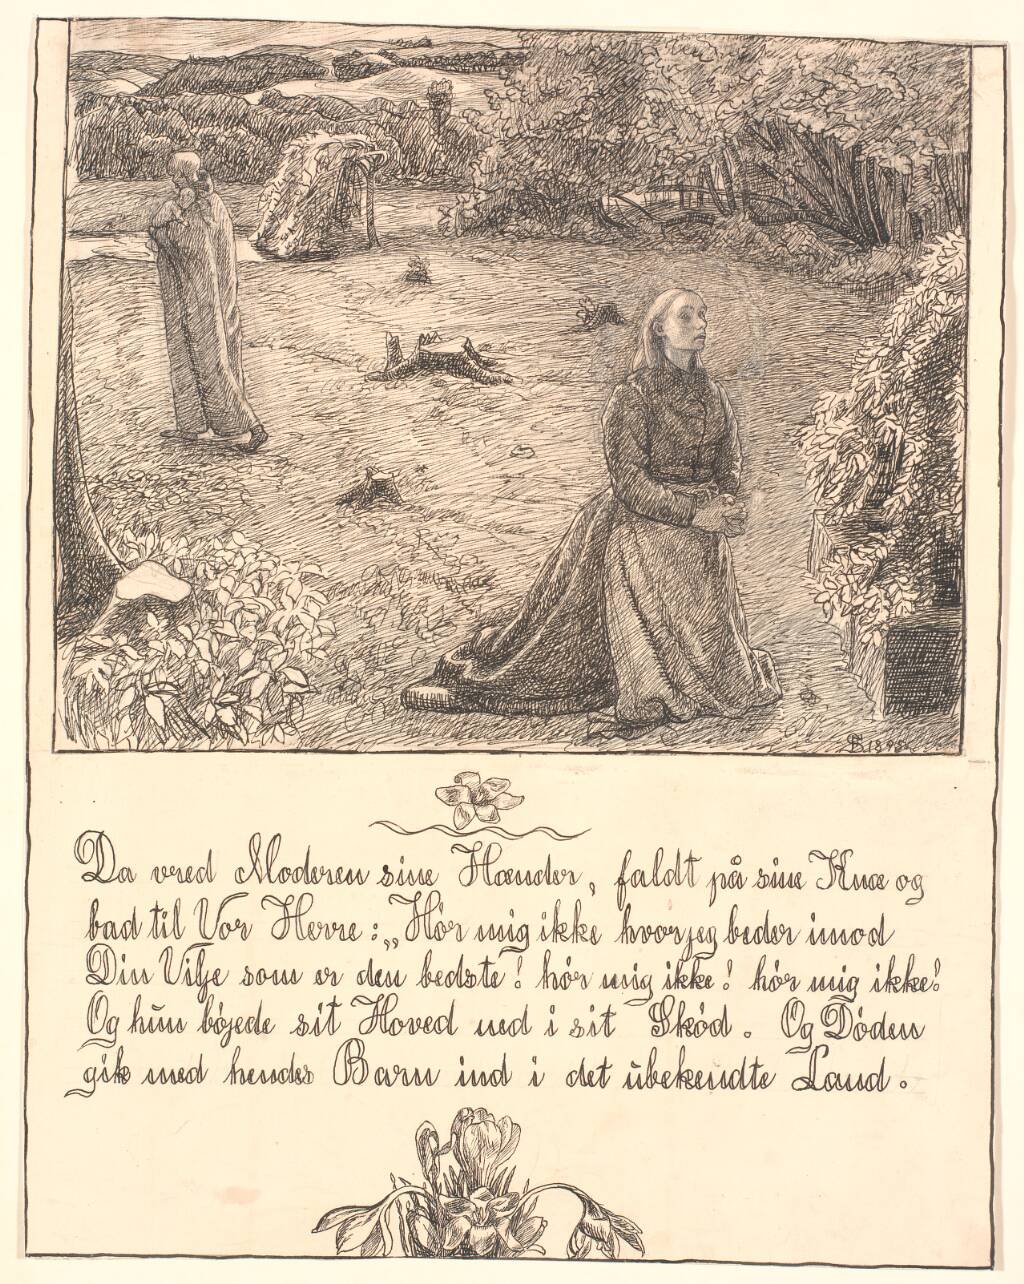 1898
Da vred Moderen sine Hænder, faldt på sine Knæ og
bad til Vor Herre: „Hör mig ikke hvor jeg beder imod
Din Vilje som er den bedste! hör mig ikke! hör mig ikke!
Og hun böjede sit Hoved ned i sit Sköd. Og Döden
gik med hendes Barn ind i det übekendte Land.